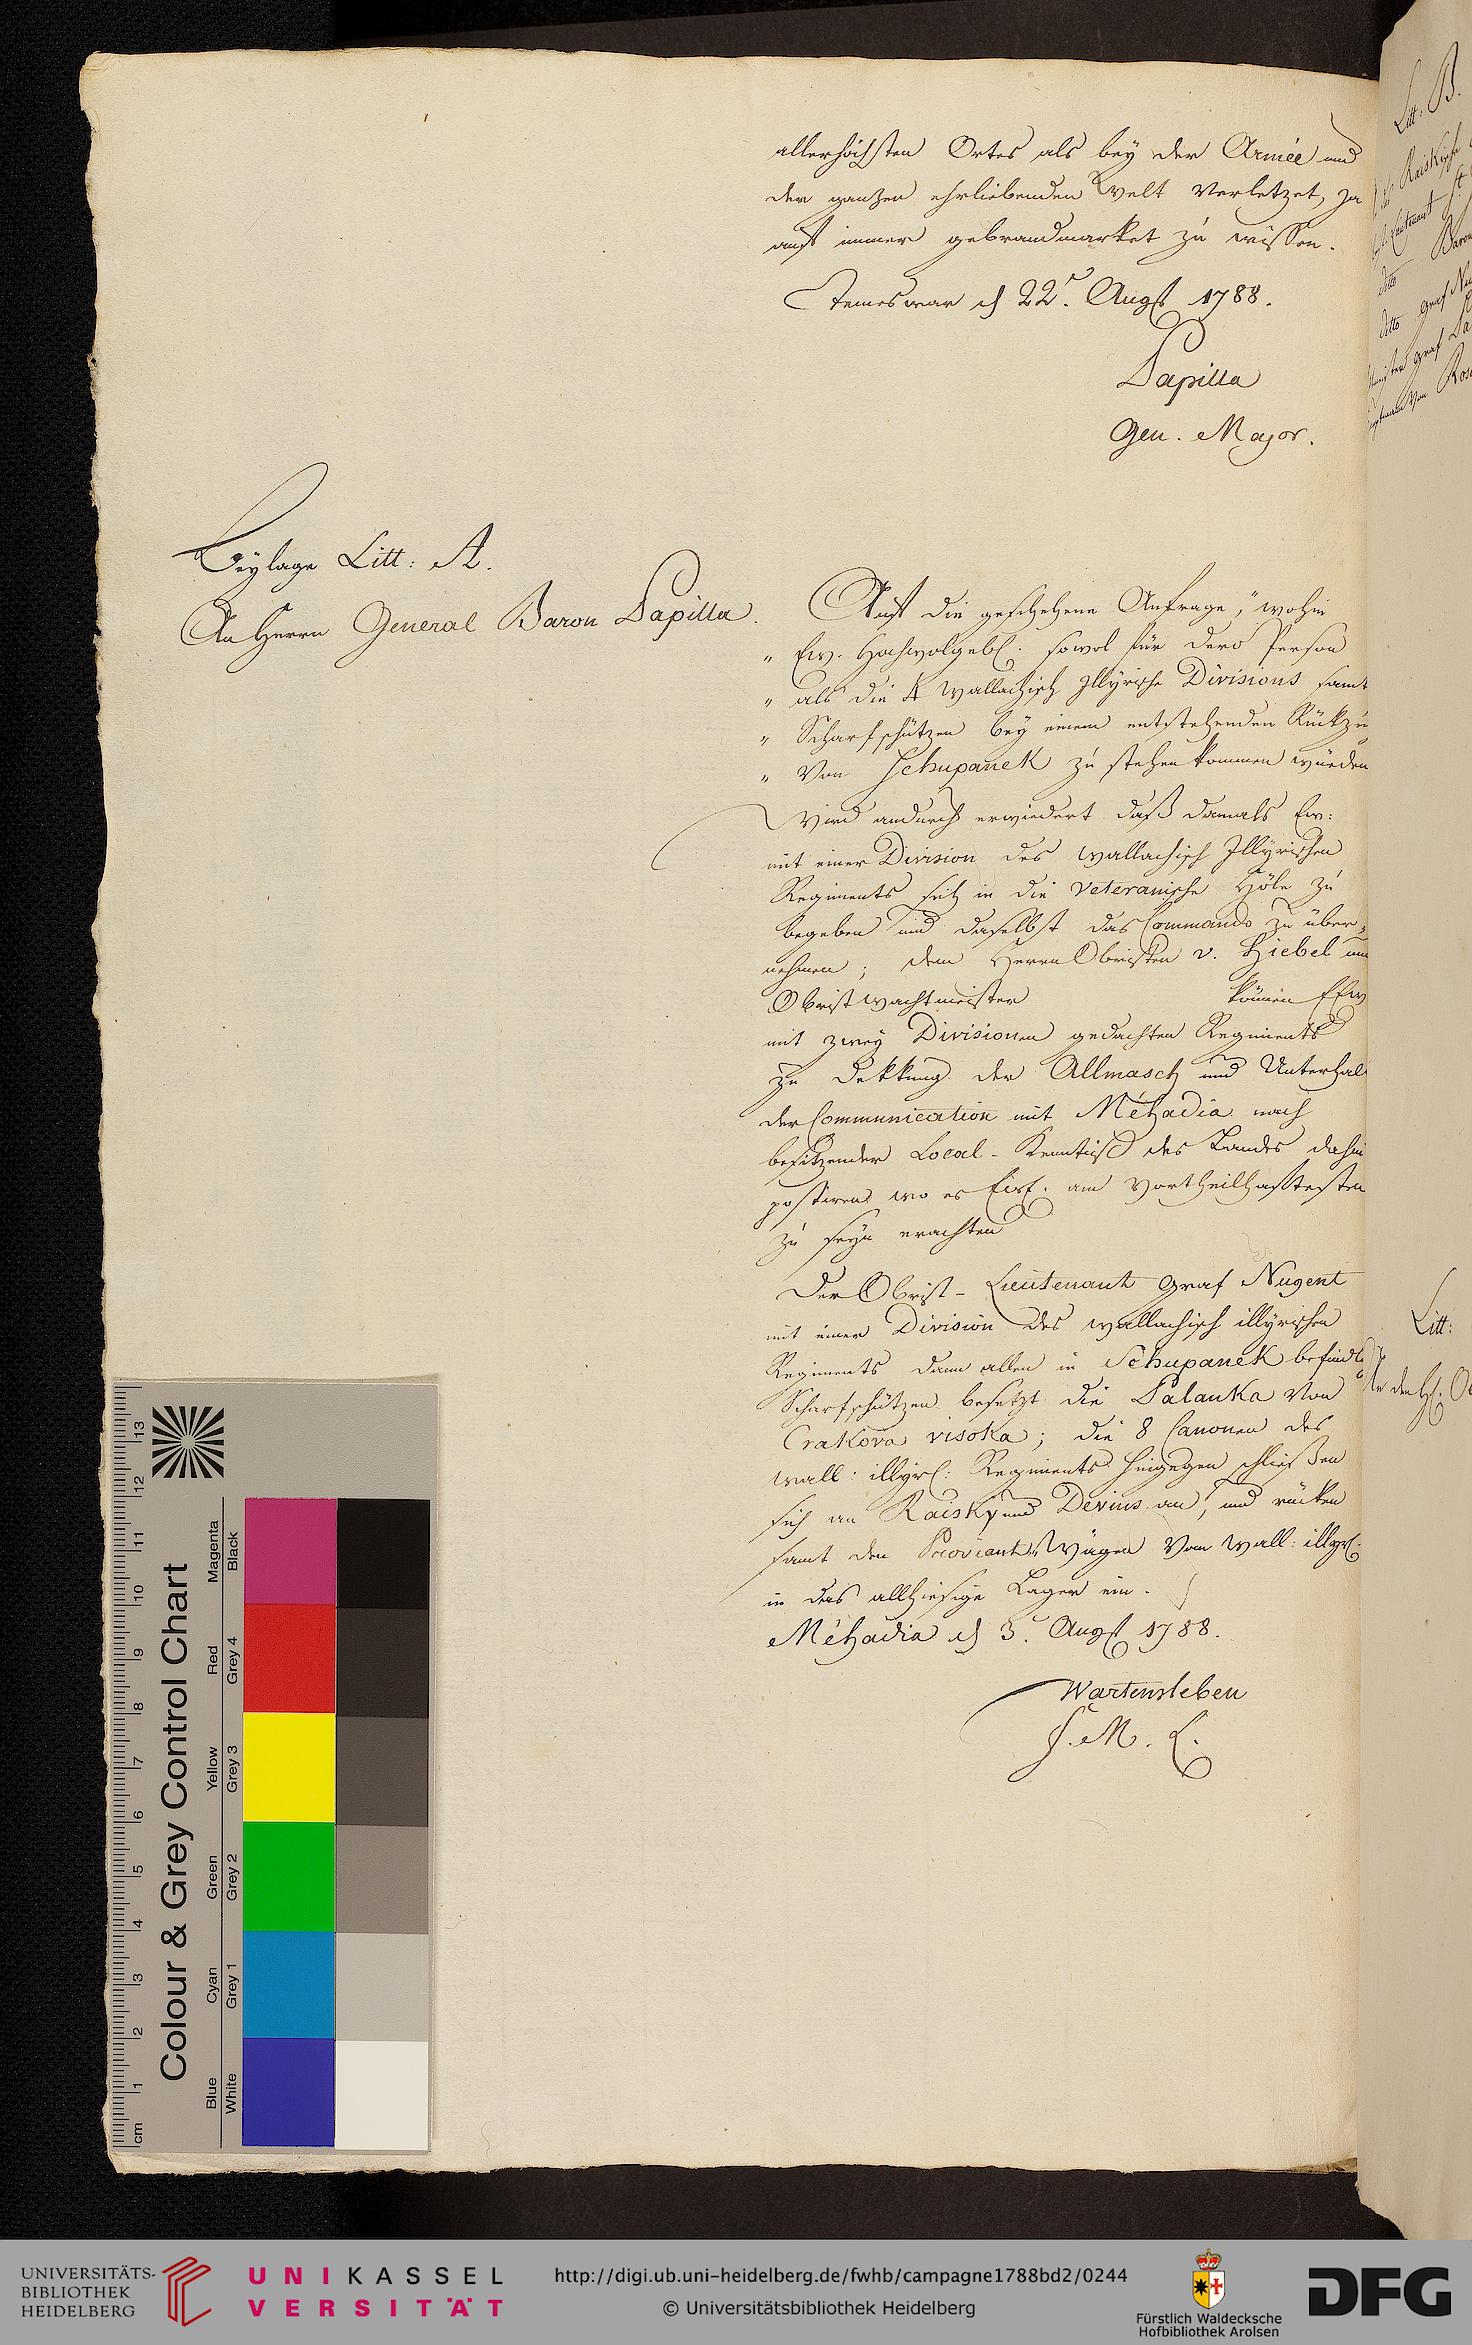 allerhöchsten Ortes als bey der Armée und
der ganzen ehrliebenden Welt verletzet, ja
auf immer gebrandmarket zu wissen.
Temeswar d 22t. Augst 1788.
Papilla
Gen. Major.
Beylage Litt: A.
An Herrn General Baron Papilla.
Auf die geschehene Anfrage, „wohin
„ Ew. Hochwolgebl. sowol für dero Person
„ als die 4 wallachisch Illyrische Divisions samt
„ Scharfschützen bey einem entstehenden Rückzu
„ von Schupanek zu stehen kommen würden
wird andurch erwiedert daß damals Ew:
mit einer Division des wallachisch Illyrischen
Regiments sich in die Veteranische Höle zu
begeben und daselbst das Commando zu über-
nehmen; dem Herrn Obristen v. Hiebel und
Obristwachtmeister können
mit zwey Divisionen gedachten Regiments
zu Dekkung der Allmasch und Unterhal
der Communication mit Méhadia nach
besitzender Local-Kenntniß des Landes dahin
postiren wo es am vortheilhaftesten
zu seyn erachten
Der Obrist-Lieutenant Graf Nugent
mit einer Division des wallachisch illyrischen
Regiments dann allen in Schupanek befindl
Scharfschützen besetzt die Palanka von
Crakova visoka; die 8 Canonen des
wall: illyrl: Regiments hingegen schließen
sich an Raisky und Devins an, und rücken
samt den Proviant-Wägen vom wall: illyrl:
in das allhiesige Lager ein.
Méhadia d 3t. Augst 1788.
Wartensleben
F. M. L.
Litt: B.
Raiskische
Lieutenant
ditto Baron
ditto Graf Nu
Graf Pa
von Ros
Litt:
An den H:
Colour & Grey Control Chart
Magenta Red Yellow Green Cyan Blue
Black Grey 4 Grey 3 Grey 2 Grey 1 White
cm 1 2 3 4 5 6 7 8 9 10 11 12 13
UNIVERSITÄTS-
BIBLIOTHEK
HEIDELBERG
UNIKASSEL
VERSITÄT
http://digi.ub.uni-heidelberg.de/fwhb/campagne1788bd2/0244
© Universitätsbibliothek Heidelberg
Fürstlich Waldecksche
Hofbibliothek Arolsen
DFG